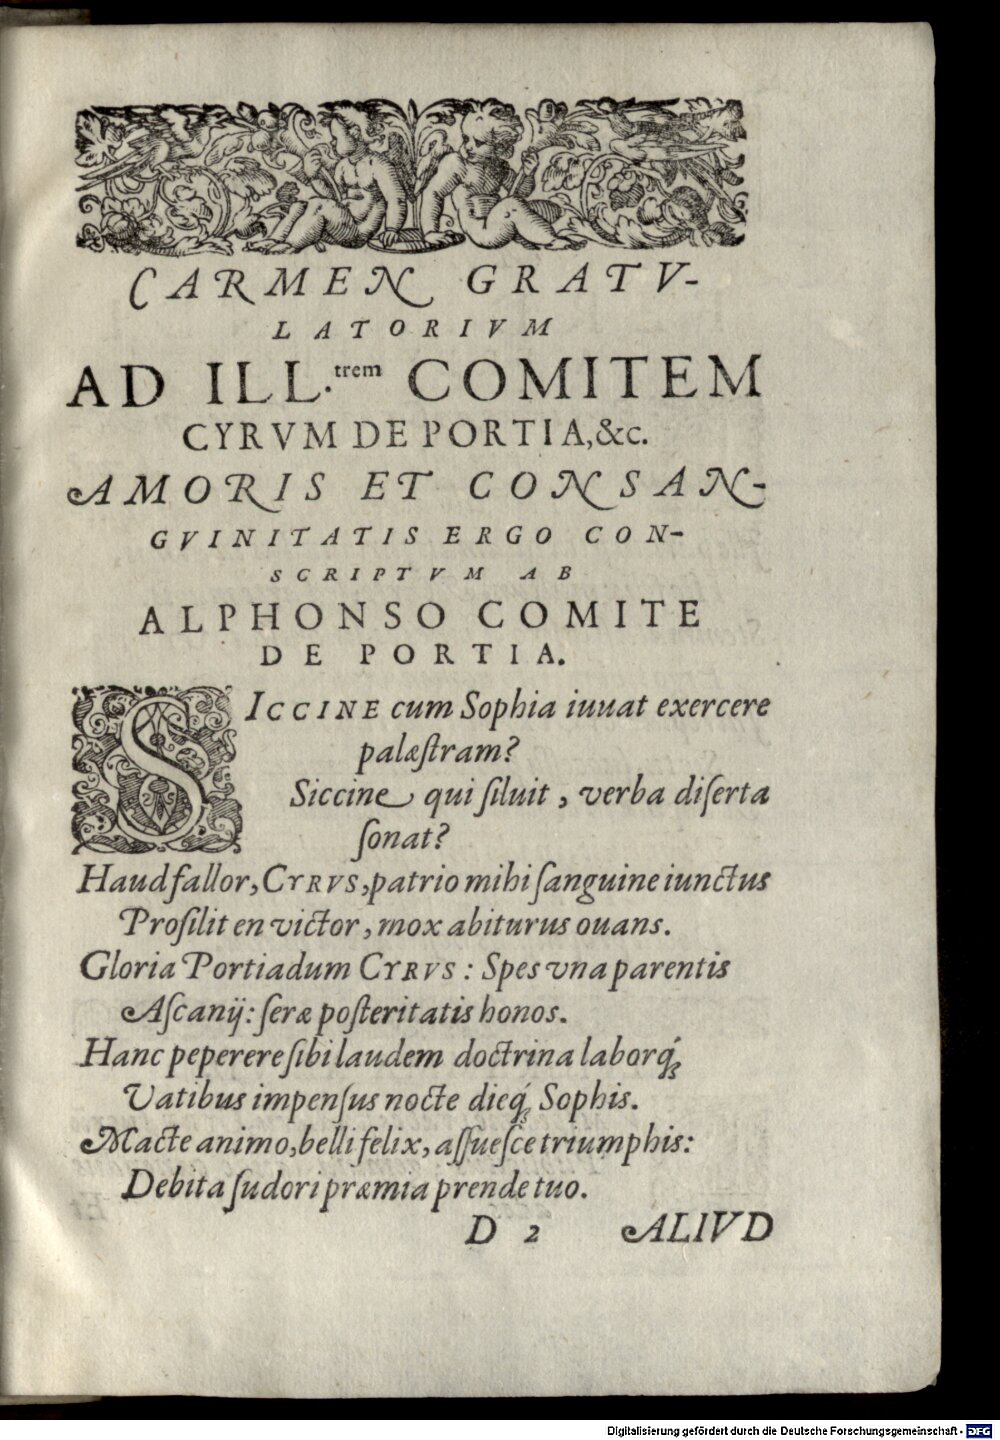 CARMEN GRATV-
LATORIVM
AD ILL.trem COMITEM
CYRVM DE PORTIA, &c.
AMORIS ET CONSAN-
GVINITATIS ERGO CON-
SCRIPTVM AB
ALPHONSO COMITE
DE PORTIA.
SICCINE cum Sophia iuuat exercere
palæſtram?
Siccine qui ſiluit, verba diſerta
ſonat?
Haud fallor, CYRVS, patrio mihi ſanguine iunctus
Proſilit en victor, mox abiturus ouans.
Gloria Portiadum CYRVS: Spes vna parentis
Aſcanij: ſeræ poſteritatis honos.
Hanc peperere ſibi laudem doctrina laborq́;
Vatibus impenſus nocte dieq́; Sophis.
Macte animo, belli felix, aſſueſce triumphis:
Debita ſudori præmia prende tuo.
D 2 ALIVD
Digitalisierung gefördert durch die Deutsche Forschungsgemeinschaft - DFG